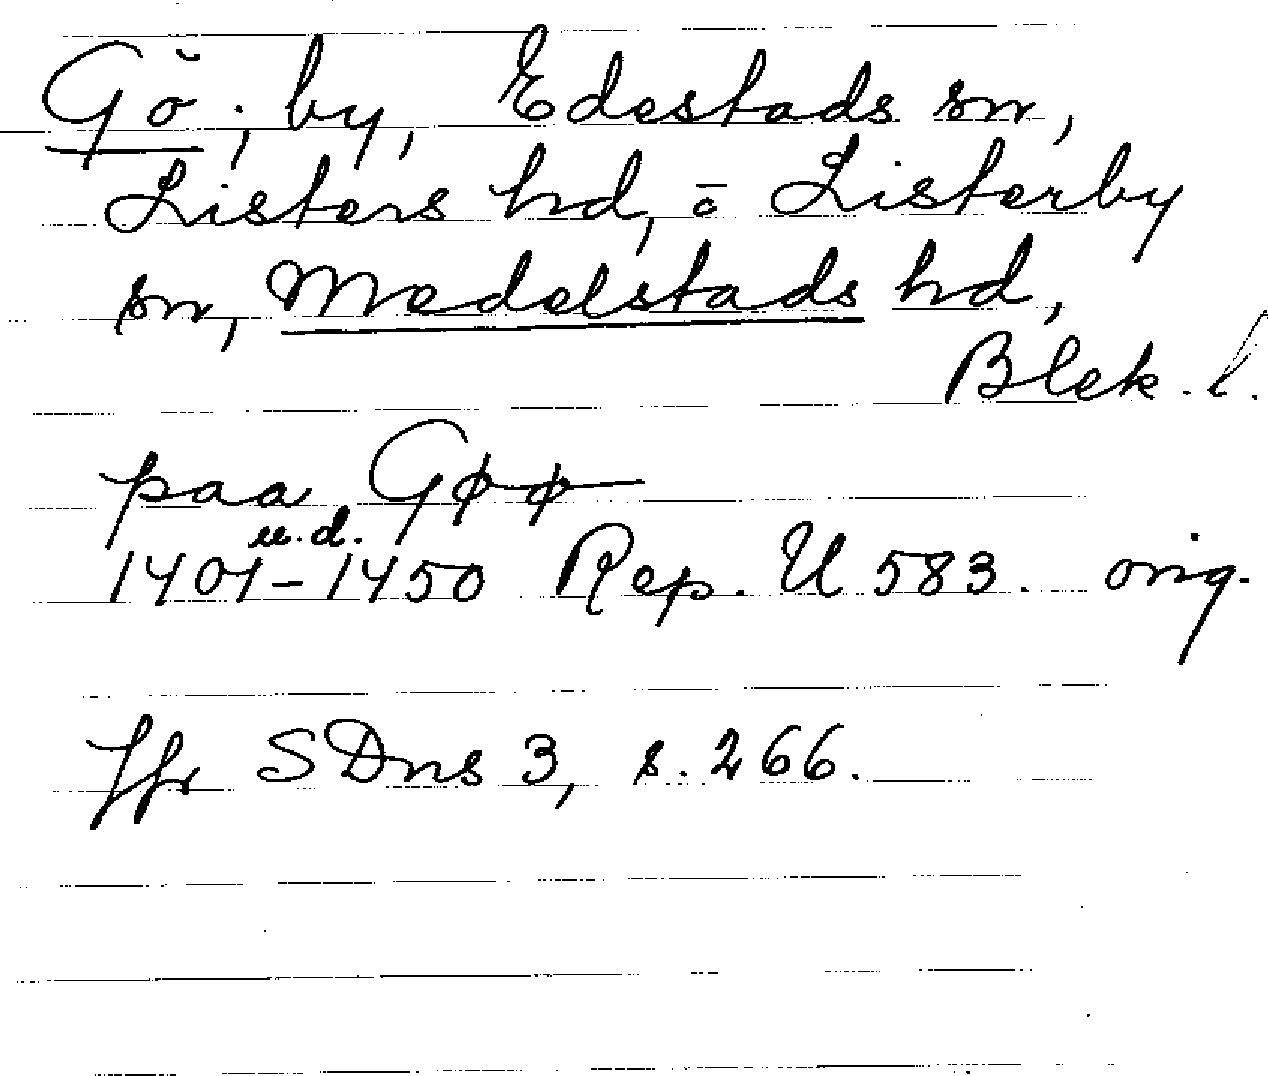 Gö, by, Edestads sn,
Listers hd, o Listerby
sn, Medelstads hd,
Blek. l.
paa Gøø
u.d.
1401-1450 Rep. U 583. orig.
Jfr SDns 3, s. 266.